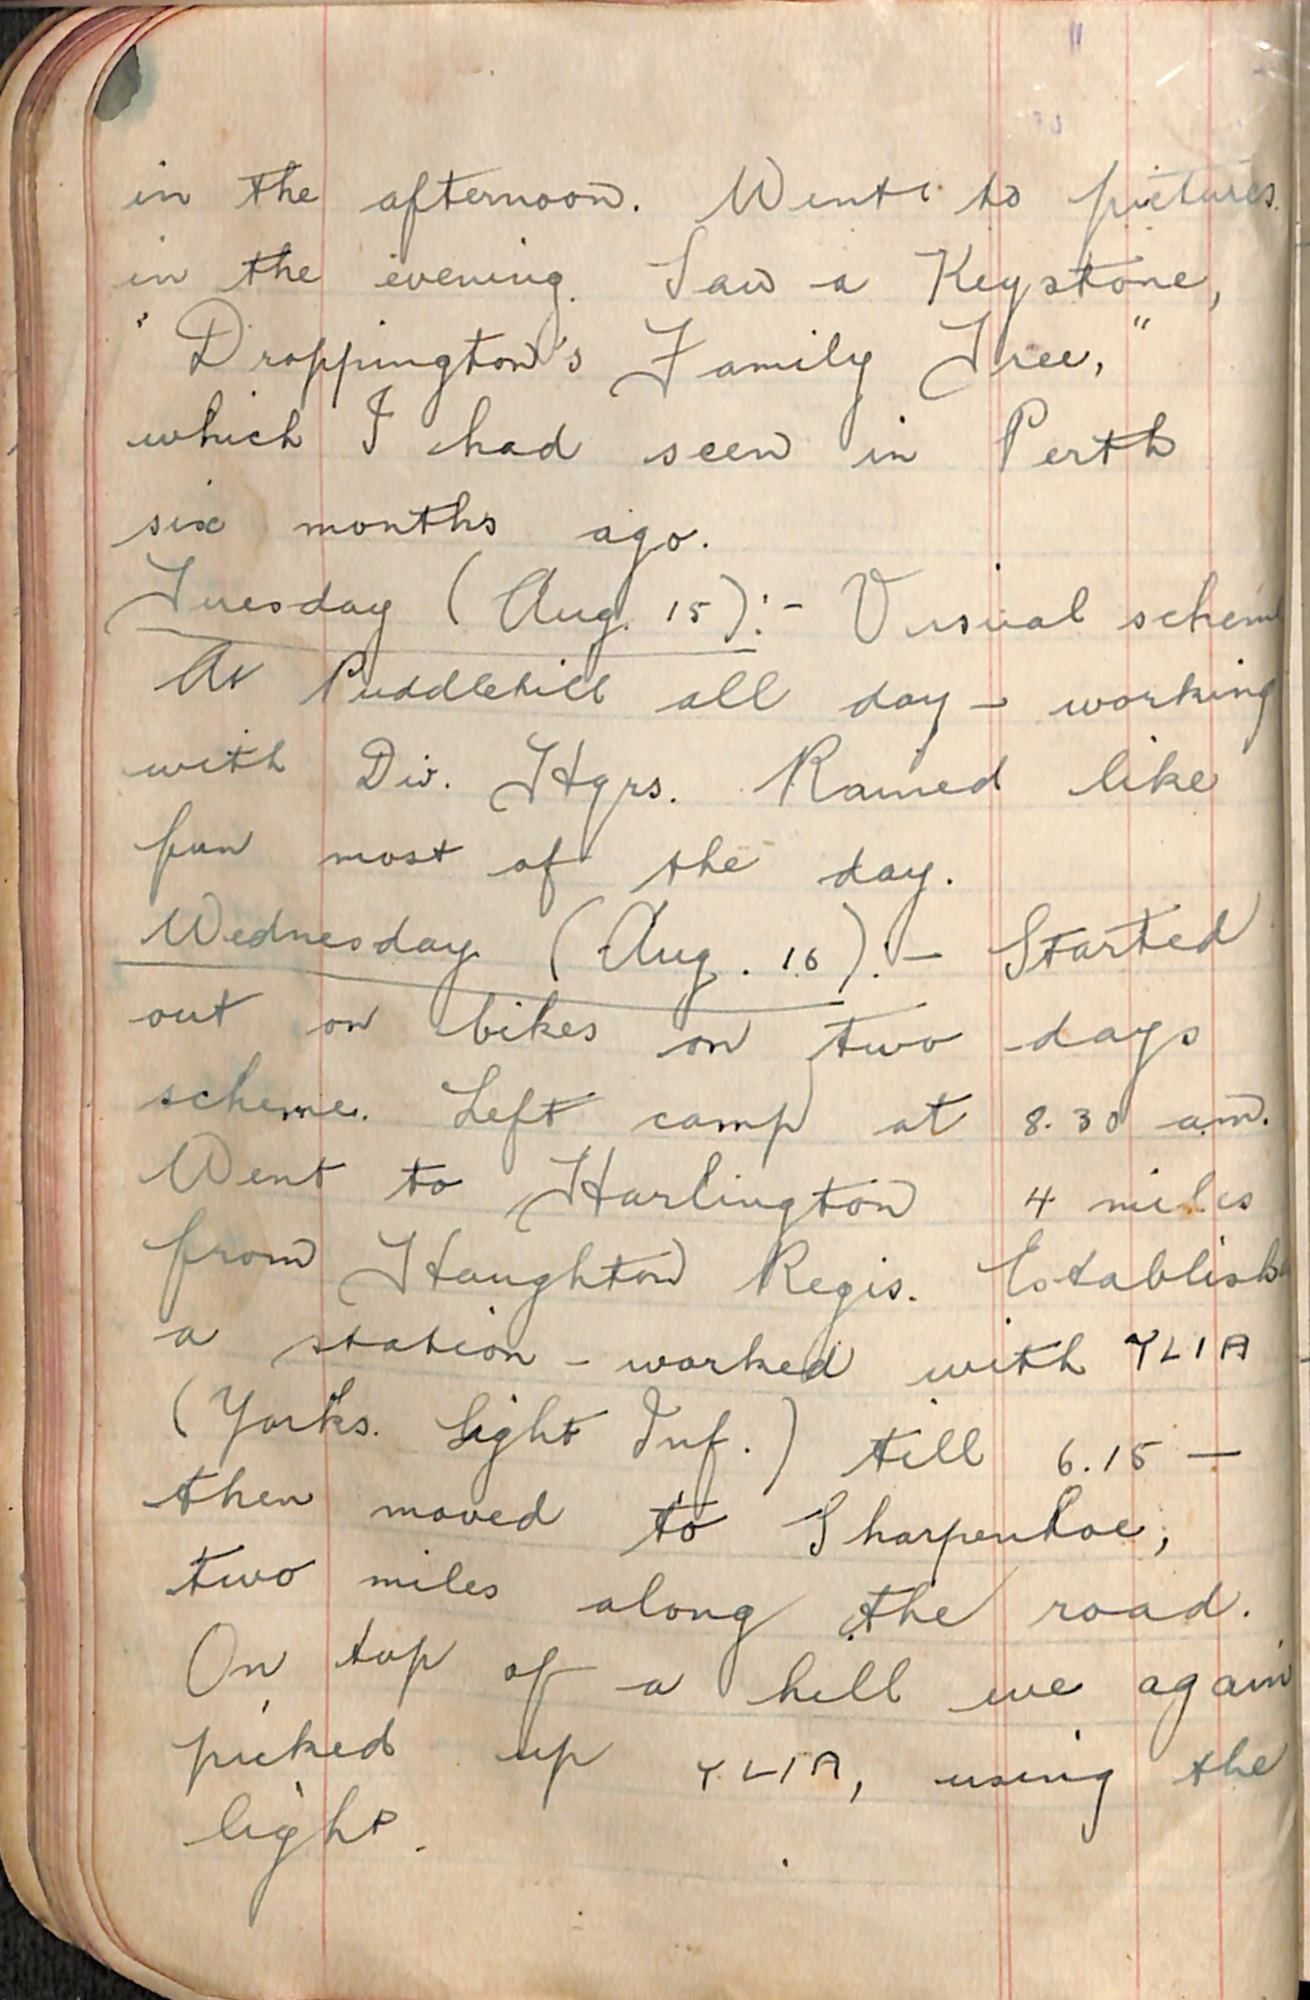 in the afternoon. Went to pictures
in the evening. Saw a Keystone,
"Droppington's Family Tree,"
which I had seen in Perth
six months ago.
Tuesday (Aug. 15):- Visual scheme
At Puddlehill all day - working
with Div. Hqrs. Rained like
fun most of the day.
Wednesday (Aug. 16):- Started
out on bikes on two days
scheme. Left camp at 8.30 am.
Went to Harlington 4 miles
from Haughton Regis. Establish
a station - worked with YLIA
(Yorks. Light Inf.) till 6.15 -
then moved to Sharpenhoe,
two miles along the road.
On top of a hill we again
picked up YLIA, using the
light.